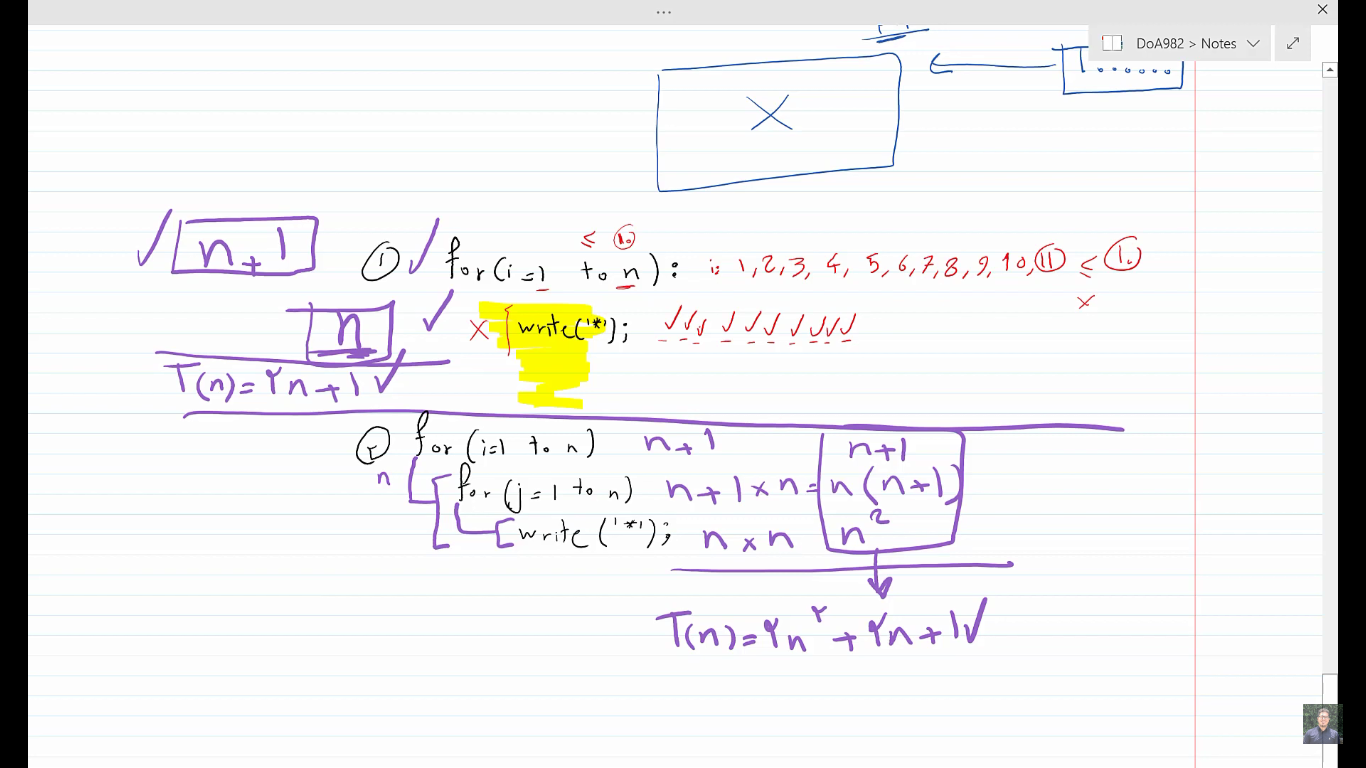 DoA982 > Notes
≤ ⑩
n+1 ① for(i=1 to n): i: 1,2,3, 4, 5,6,7,8,9,10,⑪ ≤ ⑩
n × write('*');
T(n)=۲n+1
② for(i=1 to n) n+1 n+1
n for(j=1 to n) n+1×n= n(n+1)
write('*'); n×n n²
T(n)=۲n^۲+۲n+1